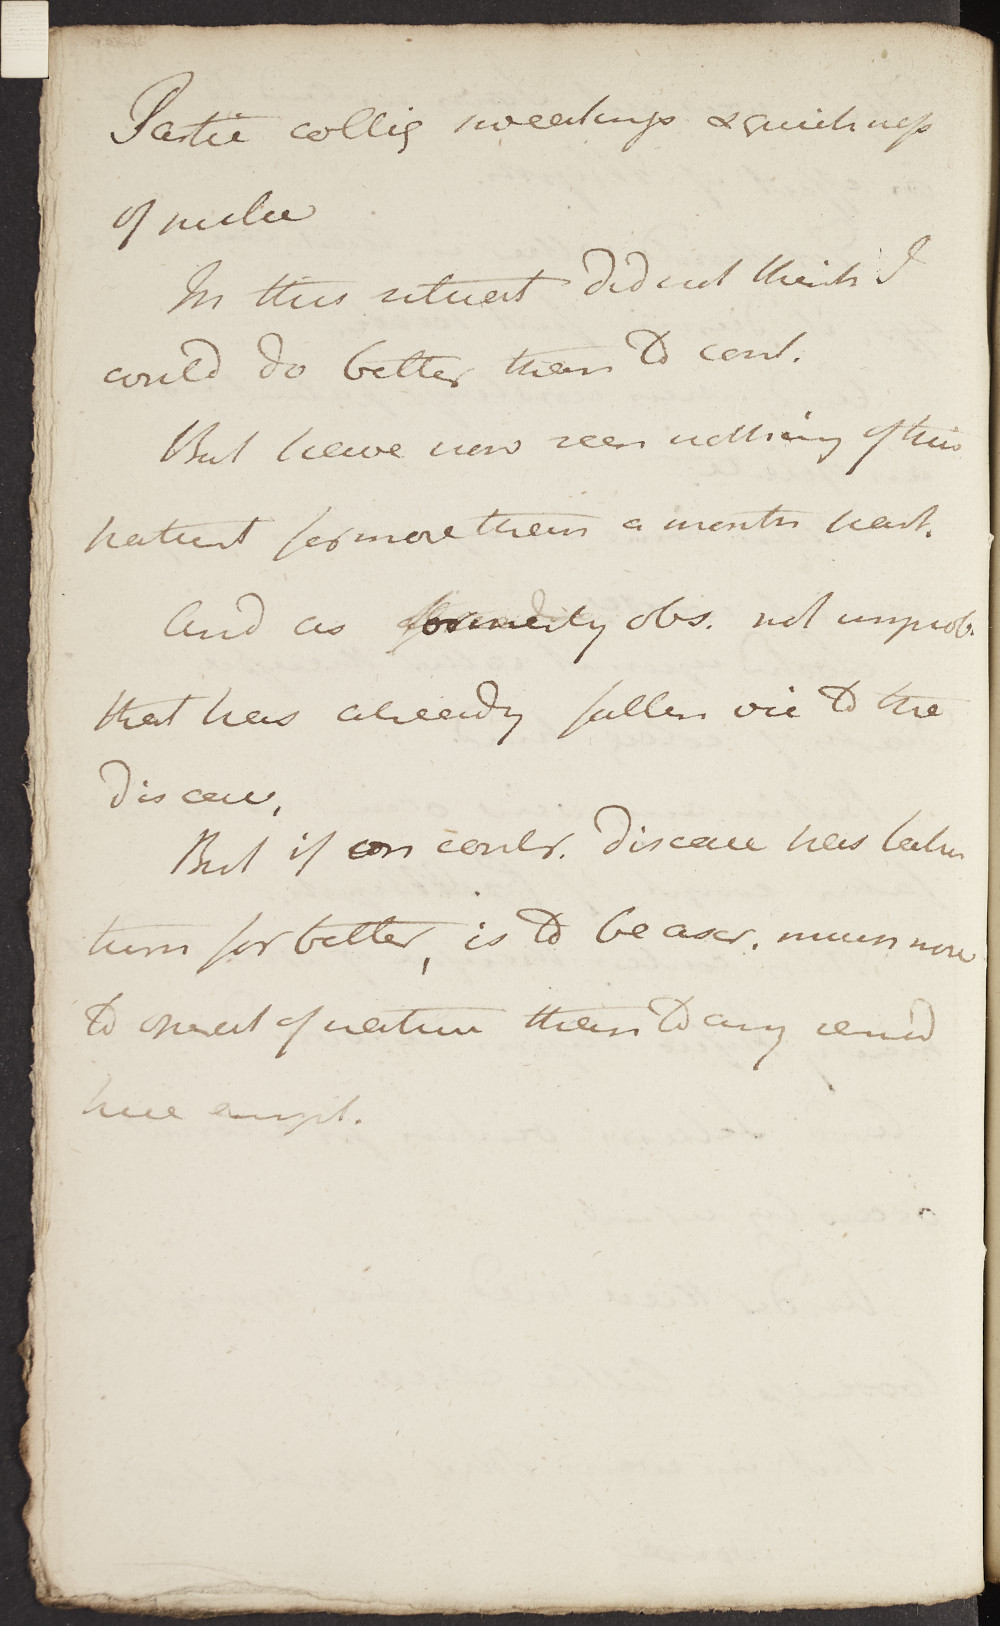 Partic collig sweatings & quickness
of pulse
In this situat did not think I
could do better than to cont.
But have now seen nothing of this
nature for more than a month past.
And as formerly obs. not improb.
that has already fallen vic to the
disease,
But if on contr. disease has taken
turn for better, is to be ascr. much more
to operat of nature than to any remed
here empl.